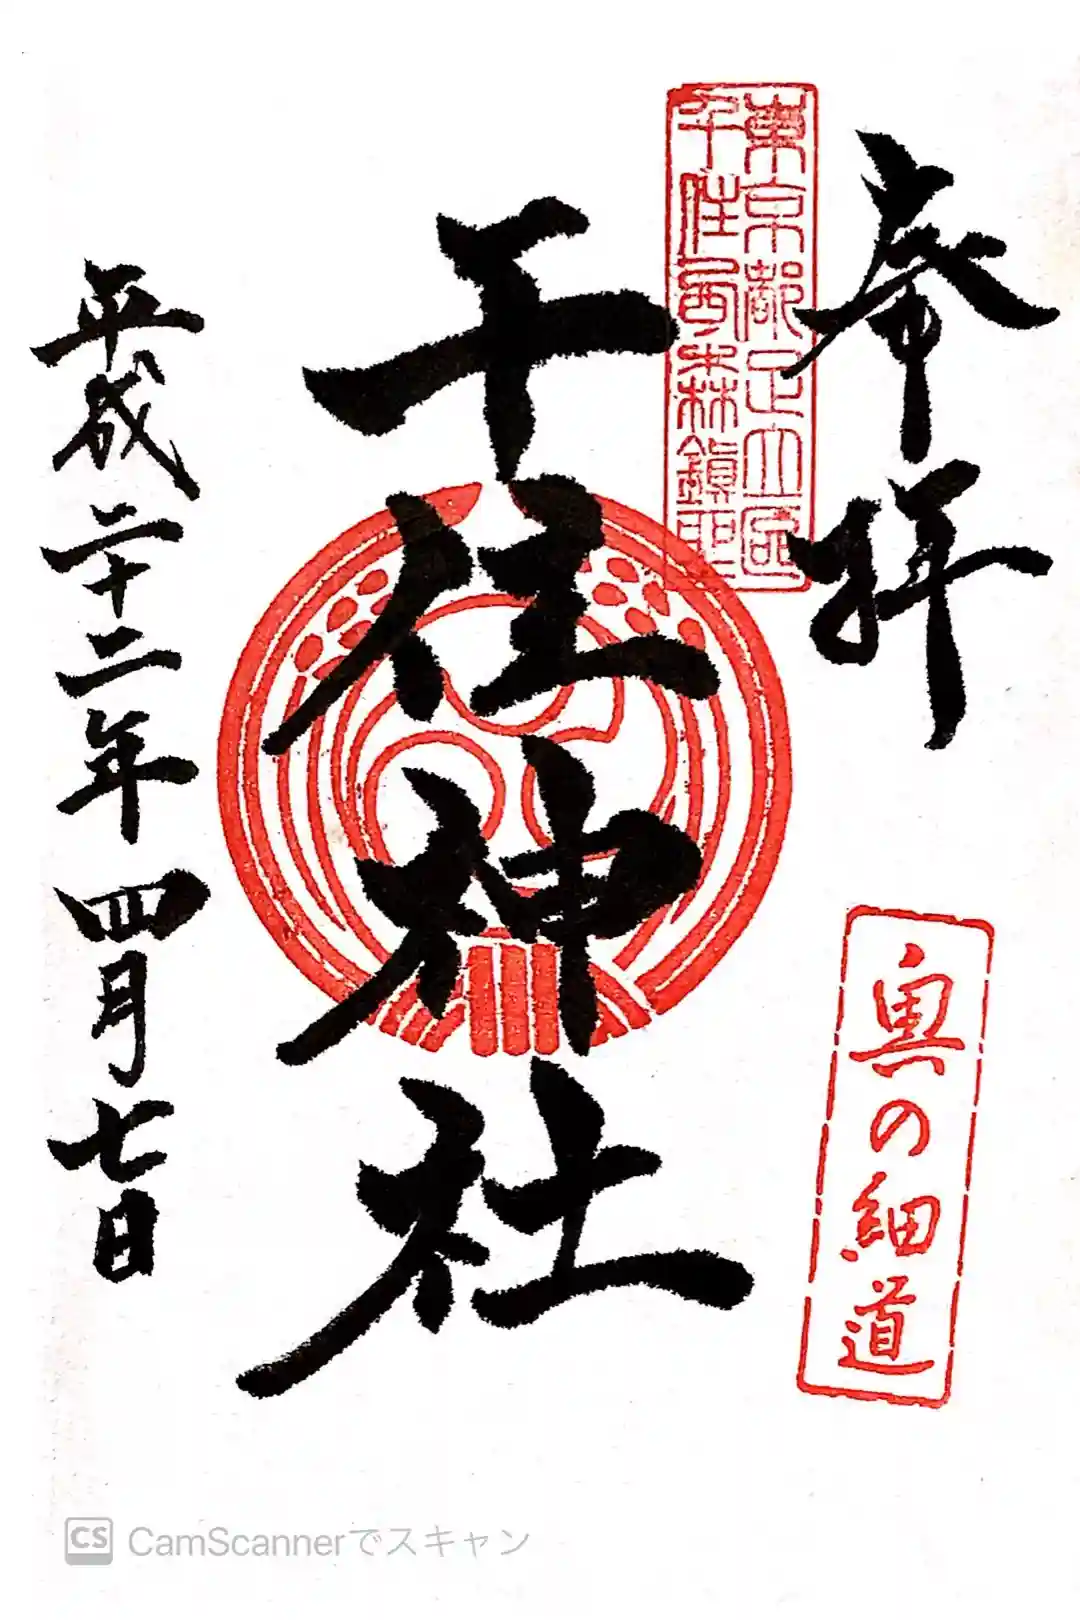 奉拝
東京都足立区
千住西森鎮座
千住神社
奥の細道
平成二十二年四月七日
CS CamScannerでスキャン